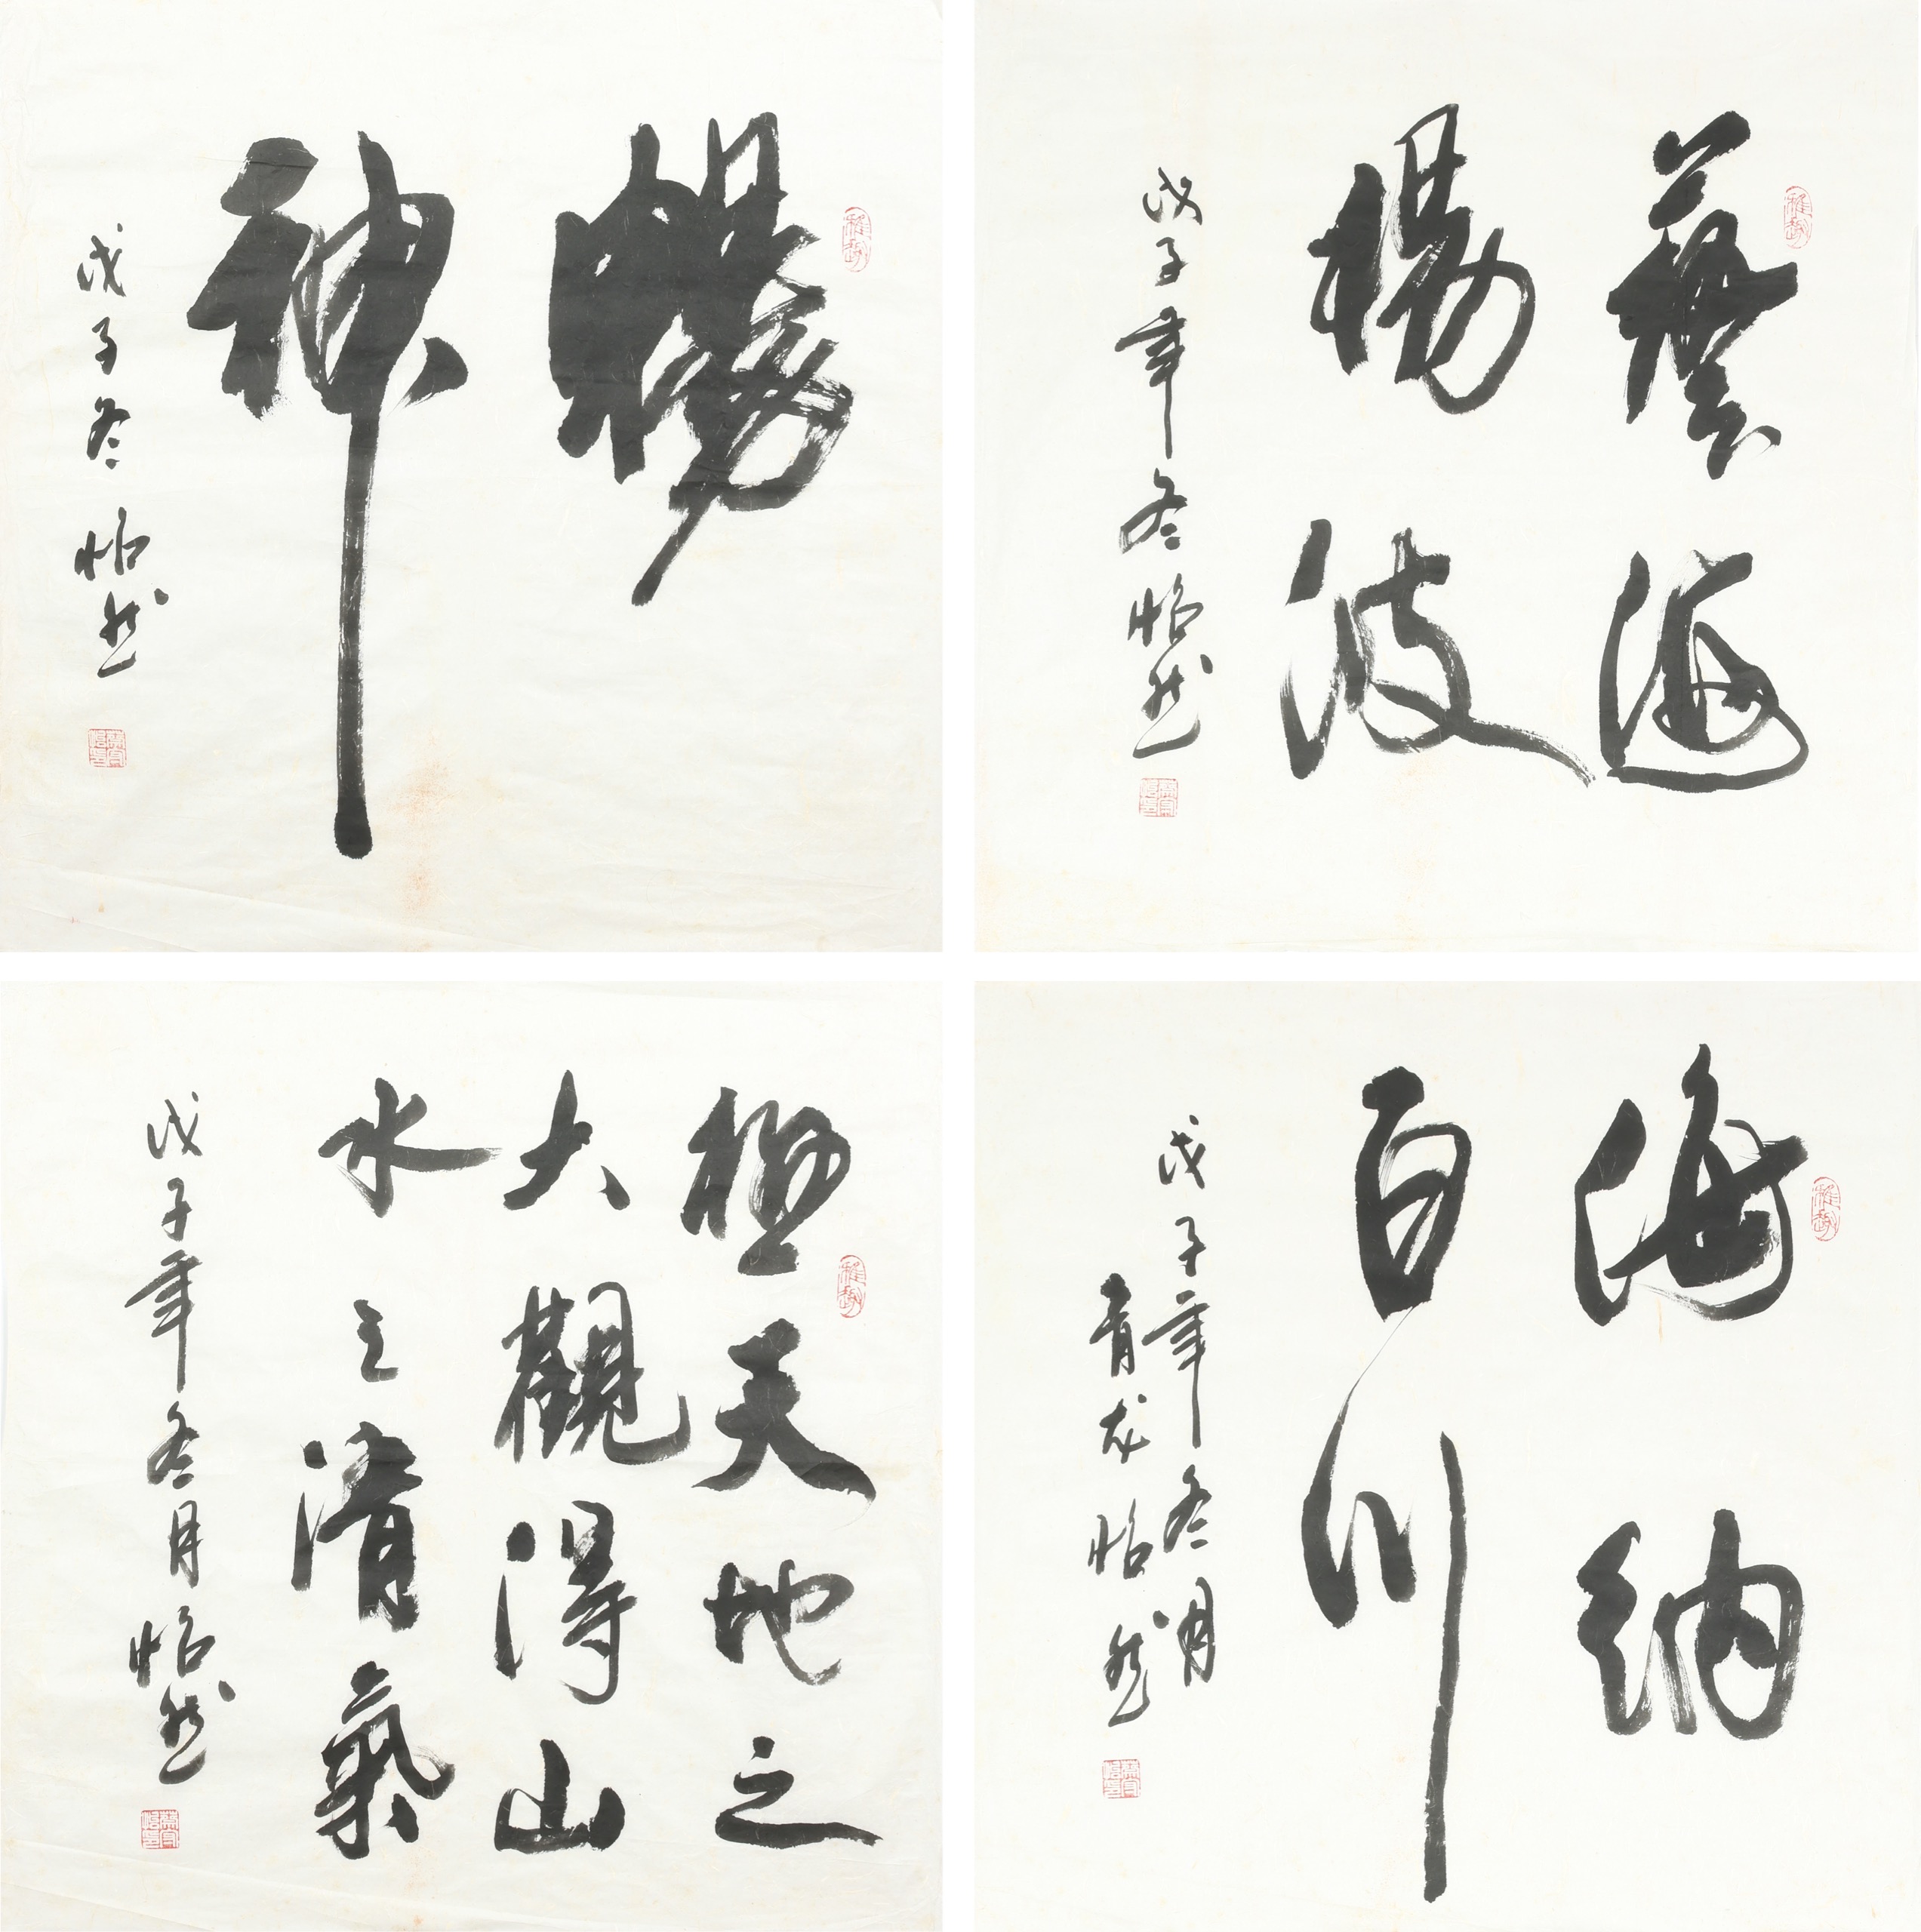 暢
神
戊子冬怡然
藝海
楊波
戊子年冬怡然
極天地之
大觀得山
水之清氣
戊子年冬月怡然
海納
百川
戊子年冬月
青龙怡然